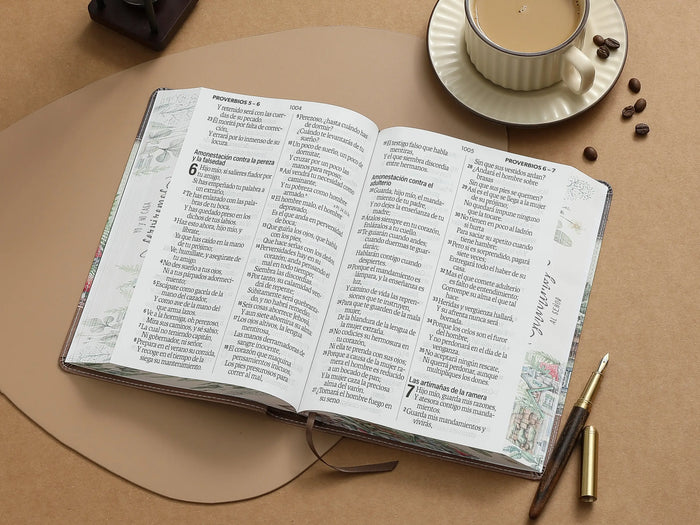 PROVERBIOS 5 - 6
1004
Y retenido será con las cuer-
das de su pecado.
23 Él morirá por falta de correc-
ción,
Y errará por lo inmenso de su
locura.
Amonestación contra la pereza
y la falsedad
6 Hijo mío, si salieres fiador por
tu amigo,
Si has empeñado tu palabra a
un extraño,
2 Te has enlazado con las pala-
bras de tu boca,
Y has quedado preso en los
dichos de tus labios.
3 Haz esto ahora, hijo mío, y
líbrate,
Ya que has caído en la mano
de tu prójimo;
Ve, humíllate, y asegúrate de
tu amigo.
4 No des sueño a tus ojos,
Ni a tus párpados adormeci-
miento;
5 Escápate como gacela de la
mano del cazador,
Y como ave de la mano del
que arma lazos.
6 Ve a la hormiga, oh perezoso,
Mira sus caminos, y sé sabio;
7 La cual no teniendo capitán,
Ni gobernador, ni señor,
8 Prepara en el verano su comida,
Y recoge en el tiempo de la
siega su mantenimiento.
9 Perezoso, ¿hasta cuándo has
de dormir?
¿Cuándo te levantarás de tu
sueño?
10 Un poco de sueño, un poco de
dormitar,
Y cruzar por un poco las
manos para reposo;
11 Así vendrá tu necesidad como
caminante,
Y tu pobreza como hombre
12 El hombre malo, el hombre
depravado,
Es el que anda en perversidad
de boca;
13 Que guiña los ojos, que habla
con los pies,
Que hace señas con los dedos.
14 Perversidades hay en su
corazón; anda pensando el
mal en todo tiempo;
Siembra las discordias.
15 Por tanto, su calamidad ven-
drá de repente;
Súbitamente será quebranta-
do, y no habrá remedio.
16 Seis cosas aborrece Jehová,
Y aun siete abomina su alma:
17 Los ojos altivos, la lengua
mentirosa,
Las manos derramadoras de
sangre inocente,
18 El corazón que maquina
pensamientos inicuos,
Los pies presurosos para
correr al mal,
1005
PROVERBIOS 6 - 7
19 El testigo falso que habla
mentiras,
Y el que siembra discordia
entre hermanos.
Amonestación contra el
adulterio
20 Guarda, hijo mío, el manda-
miento de tu padre,
Y no dejes la enseñanza de tu
madre;
21 Átalos siempre en tu corazón,
Enlázalos a tu cuello.
22 Te guiarán cuando andes;
cuando duermas te guar-
darán;
Hablarán contigo cuando
despiertes.
23 Porque el mandamiento es
lámpara, y la enseñanza es
luz,
Y camino de vida las repren-
siones que te instruyen,
24 Para que te guarden de la mala
mujer,
De la blandura de la lengua de
la mujer extraña.
25 No codicies su hermosura en
tu corazón,
Ni ella te prenda con sus ojos;
26 Porque a causa de la mujer ra-
mera el hombre es reducido
a un bocado de pan;
Y la mujer caza la preciosa
alma del varón.
27 ¿Tomará el hombre fuego en
su seno
Sin que sus vestidos ardan?
28 ¿Andará el hombre sobre
brasas
Sin que sus pies se quemen?
29 Así es el que se llega a la mujer
de su prójimo;
No quedará impune ninguno
que la tocare.
30 No tienen en poco al ladrón
si hurta
Para saciar su apetito cuando
tiene hambre;
31 Pero si es sorprendido, pagará
siete veces;
Entregará todo el haber de su
casa.
32 Mas el que comete adulterio
es falto de entendimiento;
Corrompe su alma el que tal
hace.
33 Heridas y vergüenza hallará,
Y su afrenta nunca será
borrada.
34 Porque los celos son el furor
del hombre,
Y no perdonará en el día de la
venganza.
35 No aceptará ningún rescate,
Ni querrá perdonar, aunque
multipliques los dones.
Las artimañas de la ramera
7 Hijo mío, guarda mis razones,
Y atesora contigo mis manda-
mientos.
2 Guarda mis mandamientos y
vivirás,
YO Y MI CASA
AL SEÑOR